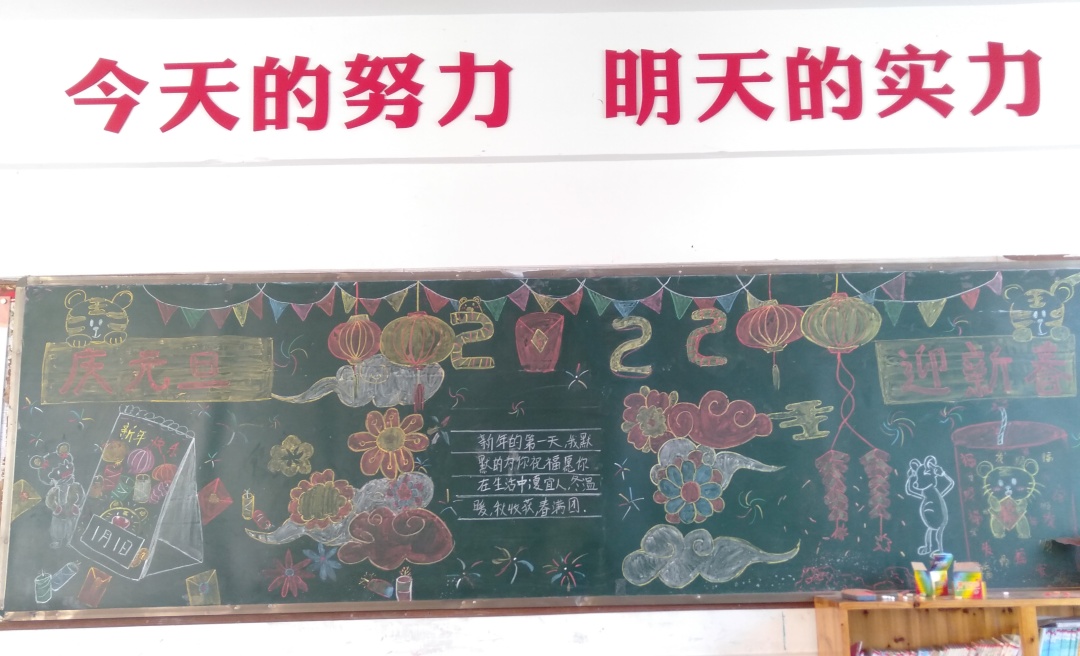 今天的努力 明天的实力
2 22
庆元旦
迎新春
新年快乐
新年的第一天,我默
默的为你祝福愿你
在生活中夏宜人,冬温
暖,秋收获春满园.
1月1日